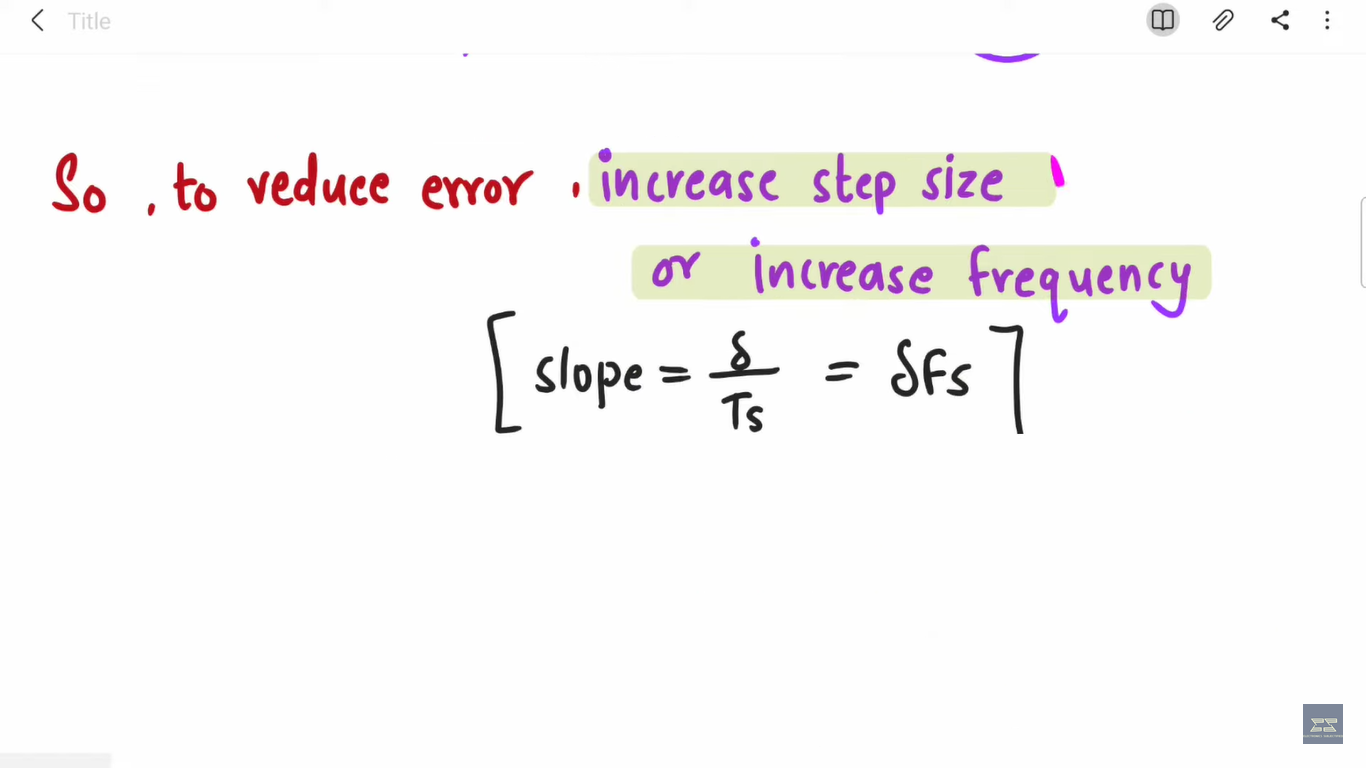 Title
So , to reduce error , increase step size
or increase frequency
[ slope = δ/Ts = δFs ]